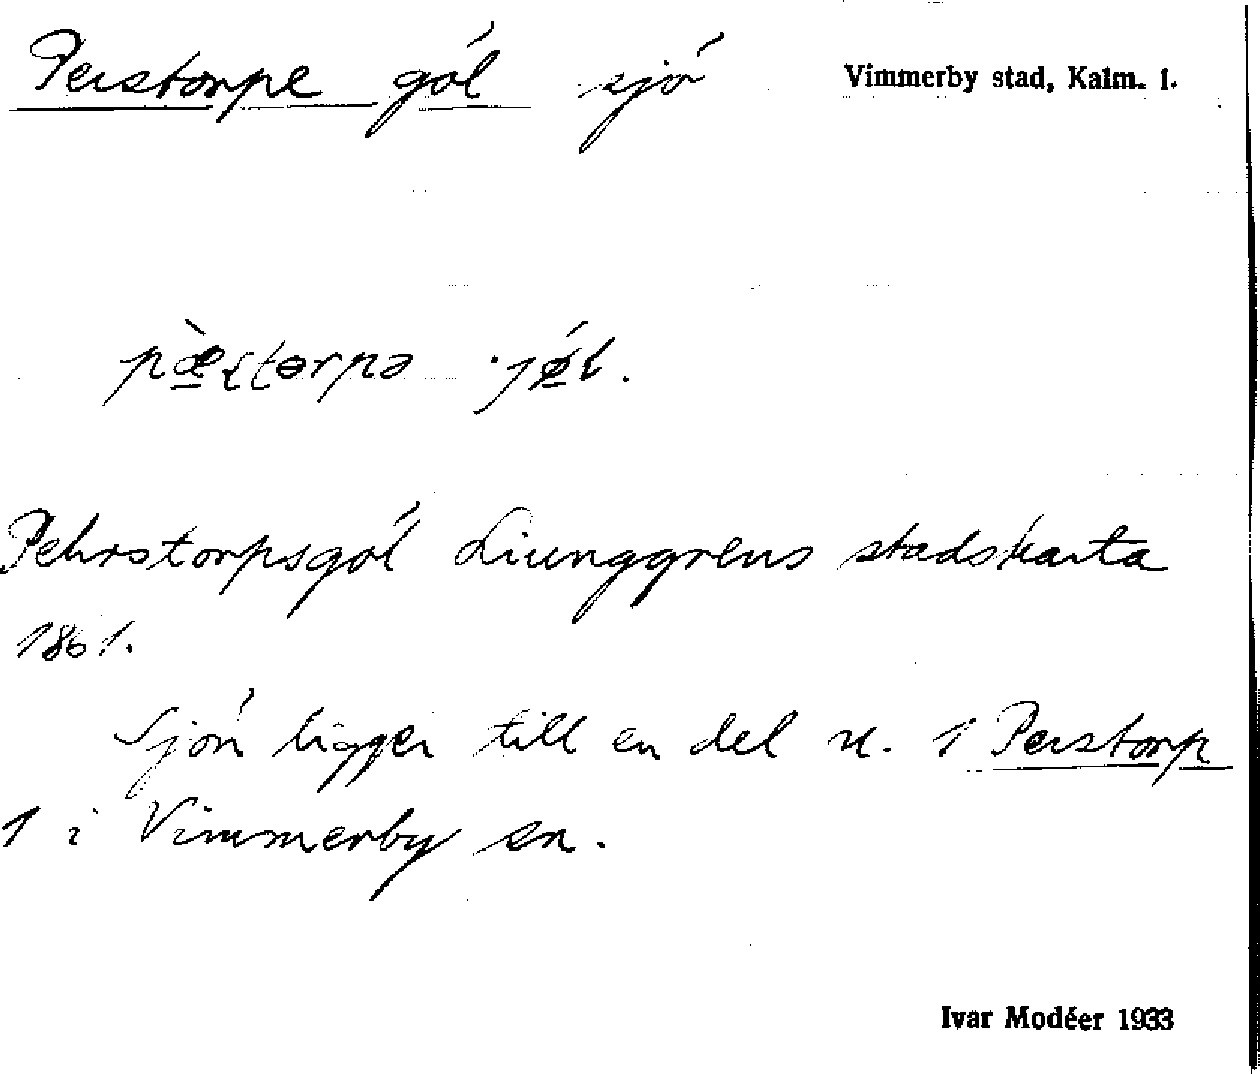 Perstorpe göl sjö Vimmerby stad, Kalm. l.
Pehrstorpsgöl Liunggrens stadskarta
1861.
Sjön ligger till en del u. 1 Perstorp
1 i Vimmerby sn.
Ivar Modéer 1933